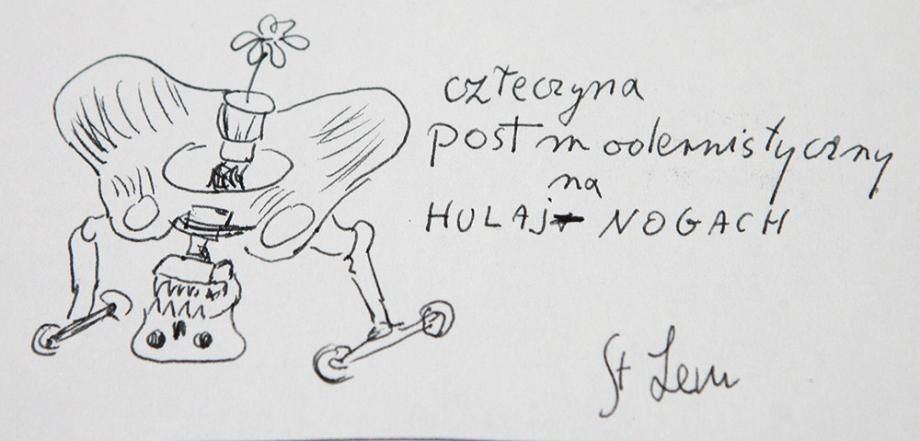 człeczyna
postmodernistyczny
na
HULAJ NOGACH
St Lem